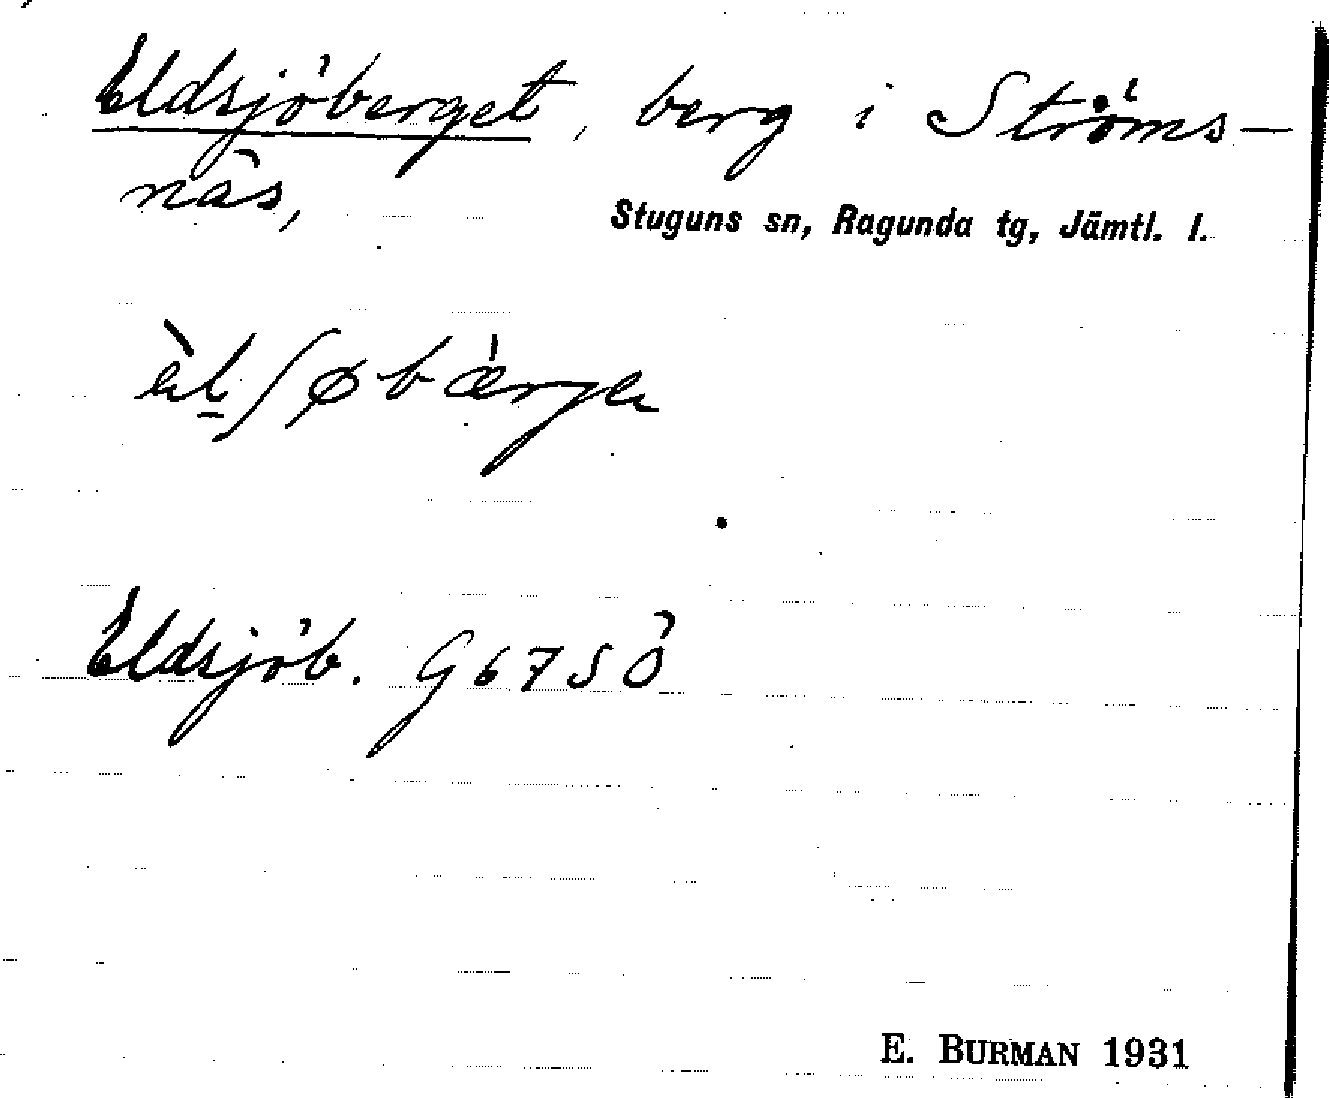 Eldsjöberget, berg i Ströms-
näs,
Stuguns sn, Ragunda tg, Jämtl. l.
Eldsjöb. G67SÖ
E. BURMAN 1931